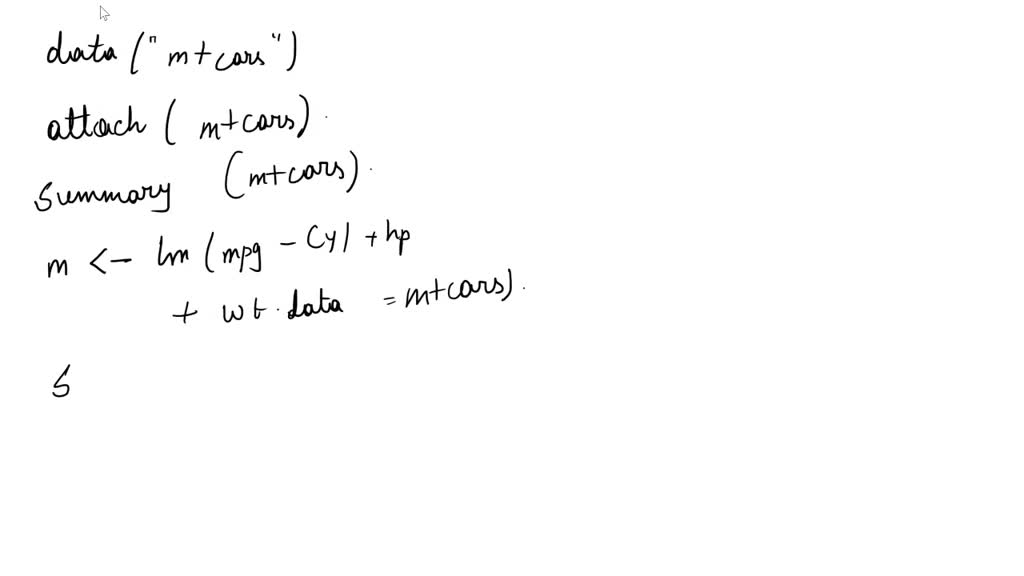 data ("mtcars")
attach (mtcars).
Summary (mtcars).
m <- lm (mpg - Cyl + hp
+ wt. data = mtcars).
S